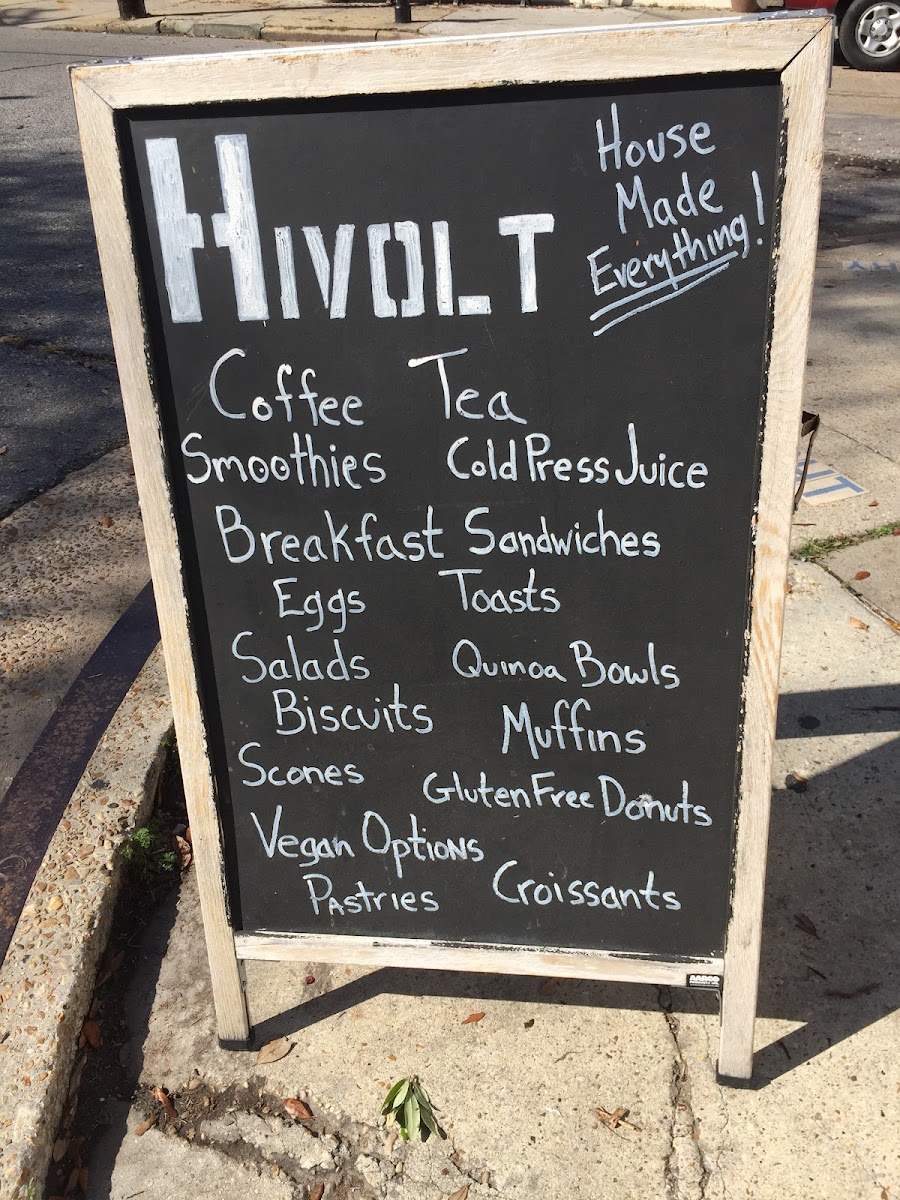 HIVOLT
House
Made
Everything!
Coffee Tea
Smoothies Cold Press Juice
Breakfast Sandwiches
Eggs Toasts
Salads Quinoa Bowls
Biscuits Muffins
Scones Gluten Free Donuts
Vegan Options
Pastries Croissants
AARCO